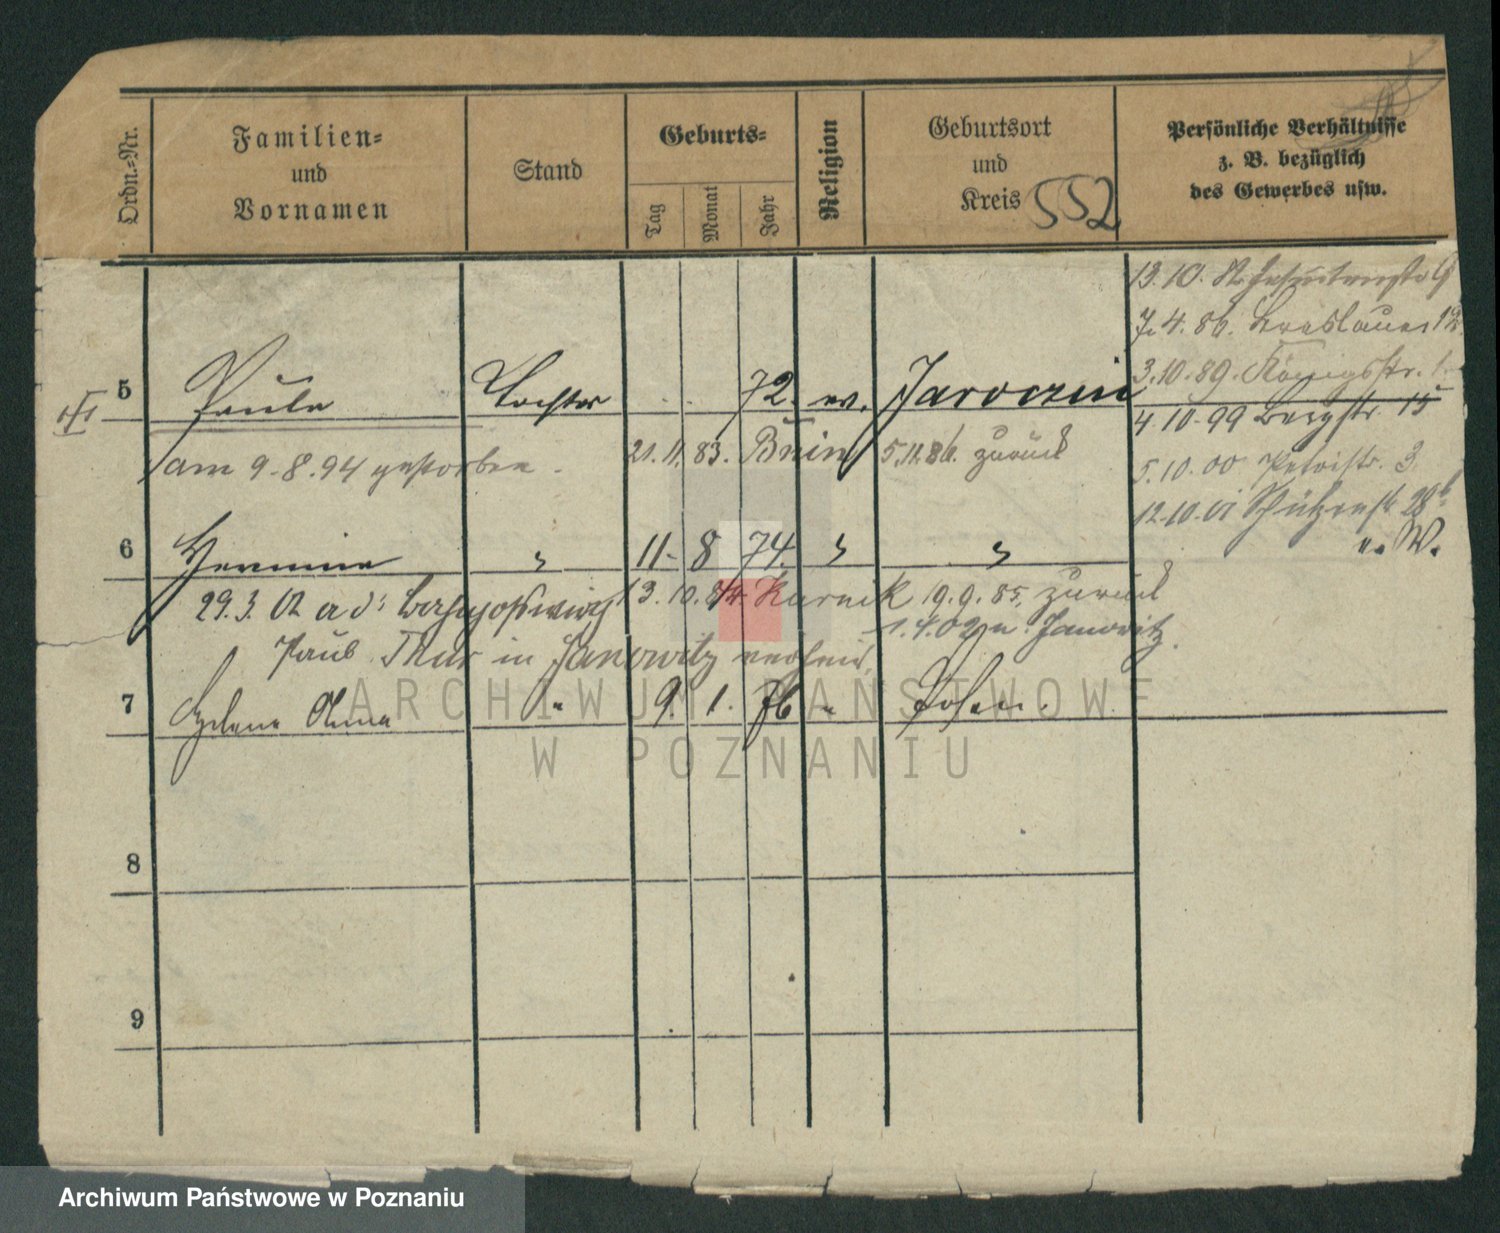 Ordn.-Nr.
Familien-
und
Vornamen
Stand
Geburts-
Tag
Monat
Jahr
Religion
Geburtsort
und
Kreis
552
Persönliche Verhältnisse
z. B. bezüglich
des Gewerbes usw.
13.10.
7.4.86. Breslauer 12
3.10.89. Königsstr. 1.
4.10.99 Bergstr. 15
5.10.00 Petristr. 3.
12.10.01 Schützenstr. 28b
n. W.
5 Paula Tochter 72. ev. Jaroczin
am 9.8.94 gestorben. 21.11.83. Bnin 5.11.86. zurück
6 Hermine " 11 8 74. " "
29.3.02 a d: Bahnhofswirth 13.10.84. Kurnik 19.9.85. zurück
1.4.02 n. Janowitz.
Paul Thur in Janowitz verheir.
7 Helene Anna " 9. 1. 76 " Posen.
8
9
ARCHIWUM PAŃSTWOWE
W POZNANIU
Archiwum Państwowe w Poznaniu